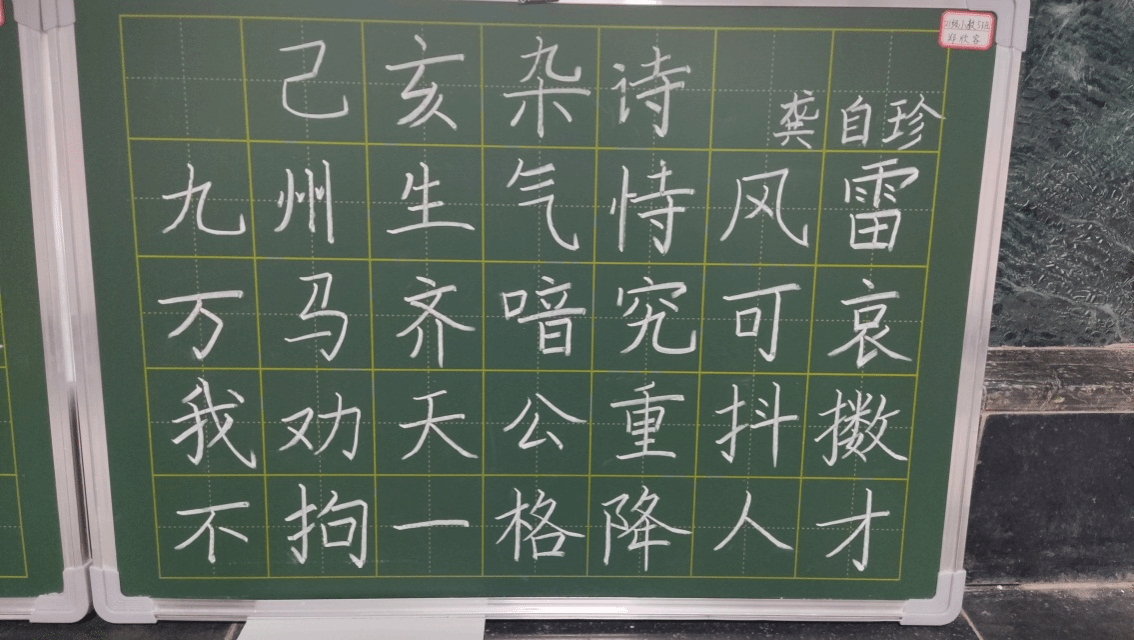 21级小教
己亥杂诗
龚自珍
九州生气恃风雷
万马齐喑究可哀
我劝天公重抖擞
不拘一格降人才